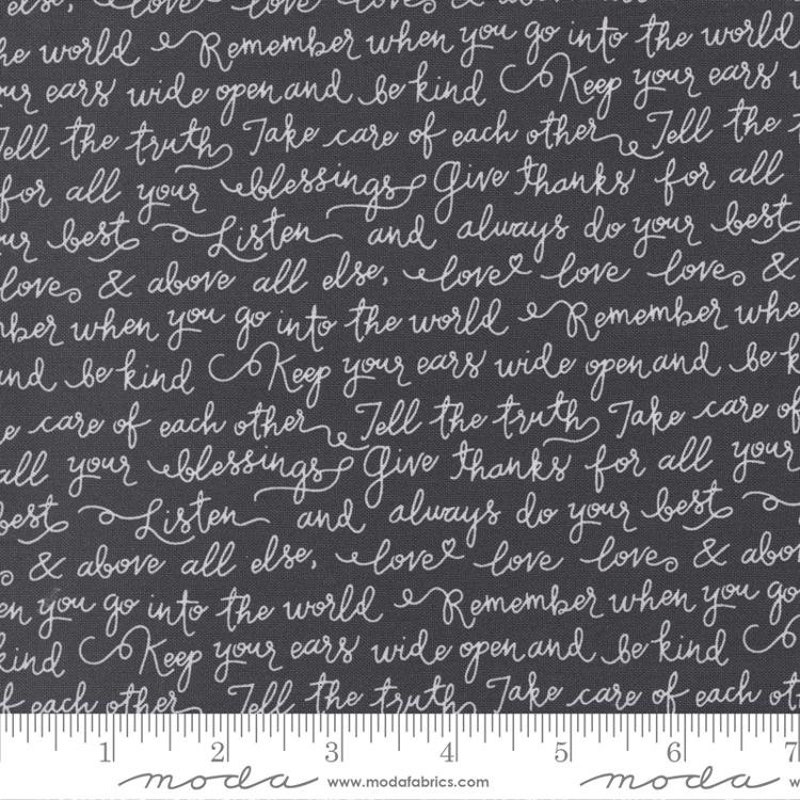 else, love love love & above all else,
he world Remember when you go into the world
ur ears wide open and be kind Keep your ears
Tell the truth Take care of each other Tell the
for all your blessings Give thanks for all
ur best Listen and always do your best
love & above all else, love love love &
mber when you go into the world Remember whe
and be kind Keep your ears wide open and be k
e care of each other Tell the truth Take care of
all your blessings Give thanks for all your
best Listen and always do your best
& above all else, love love love & abov
en you go into the world Remember when you go
kind Keep your ears wide open and be kind
f each other Tell the truth Take care of each ot
1 2 3 4 5 6 7
moda www.modafabrics.com moda